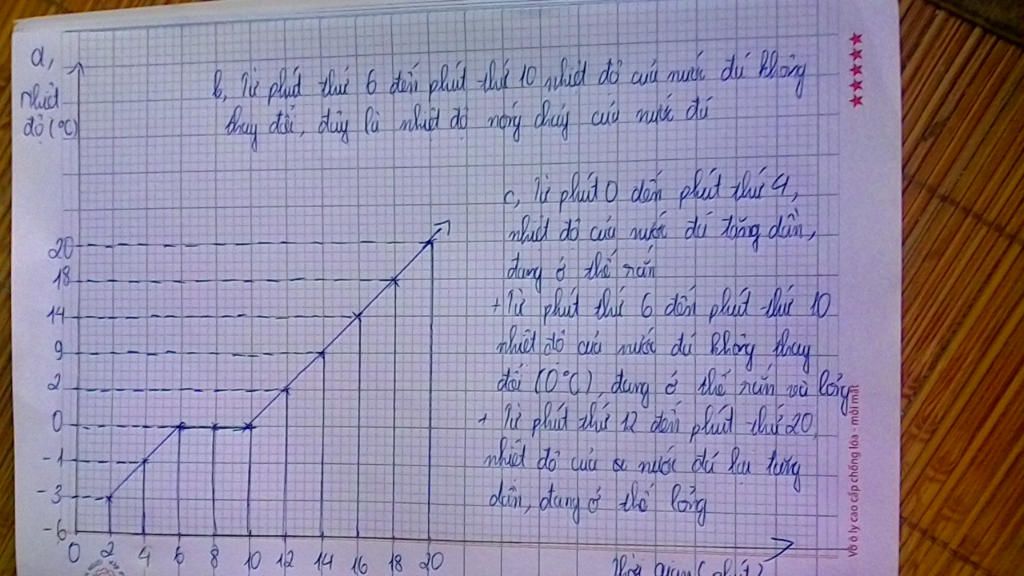 a,
nhiệt
độ (°C)
b, Từ phút thứ 6 đến phút thứ 10 nhiệt độ của nước đá không
thay đổi, đây là nhiệt độ nóng chảy của nước đá
c, Từ phút 0 đến phút thứ 4,
nhiệt độ của nước đá tăng dần,
đang ở thể rắn
+ Từ phút thứ 6 đến phút thứ 10
nhiệt độ của nước đá không thay
đổi (0°C), đang ở thể rắn và lỏng
+ Từ phút thứ 12 đến phút thứ 20,
nhiệt độ của nước đá lại tăng
dần, đang ở thể lỏng
20
18
14
9
2
0
-1
-3
-6
0 2 4 6 8 10 12 14 16 18 20
Thời gian (phút)
Vở ô ly cao cấp chống lóa - mỏi mắt